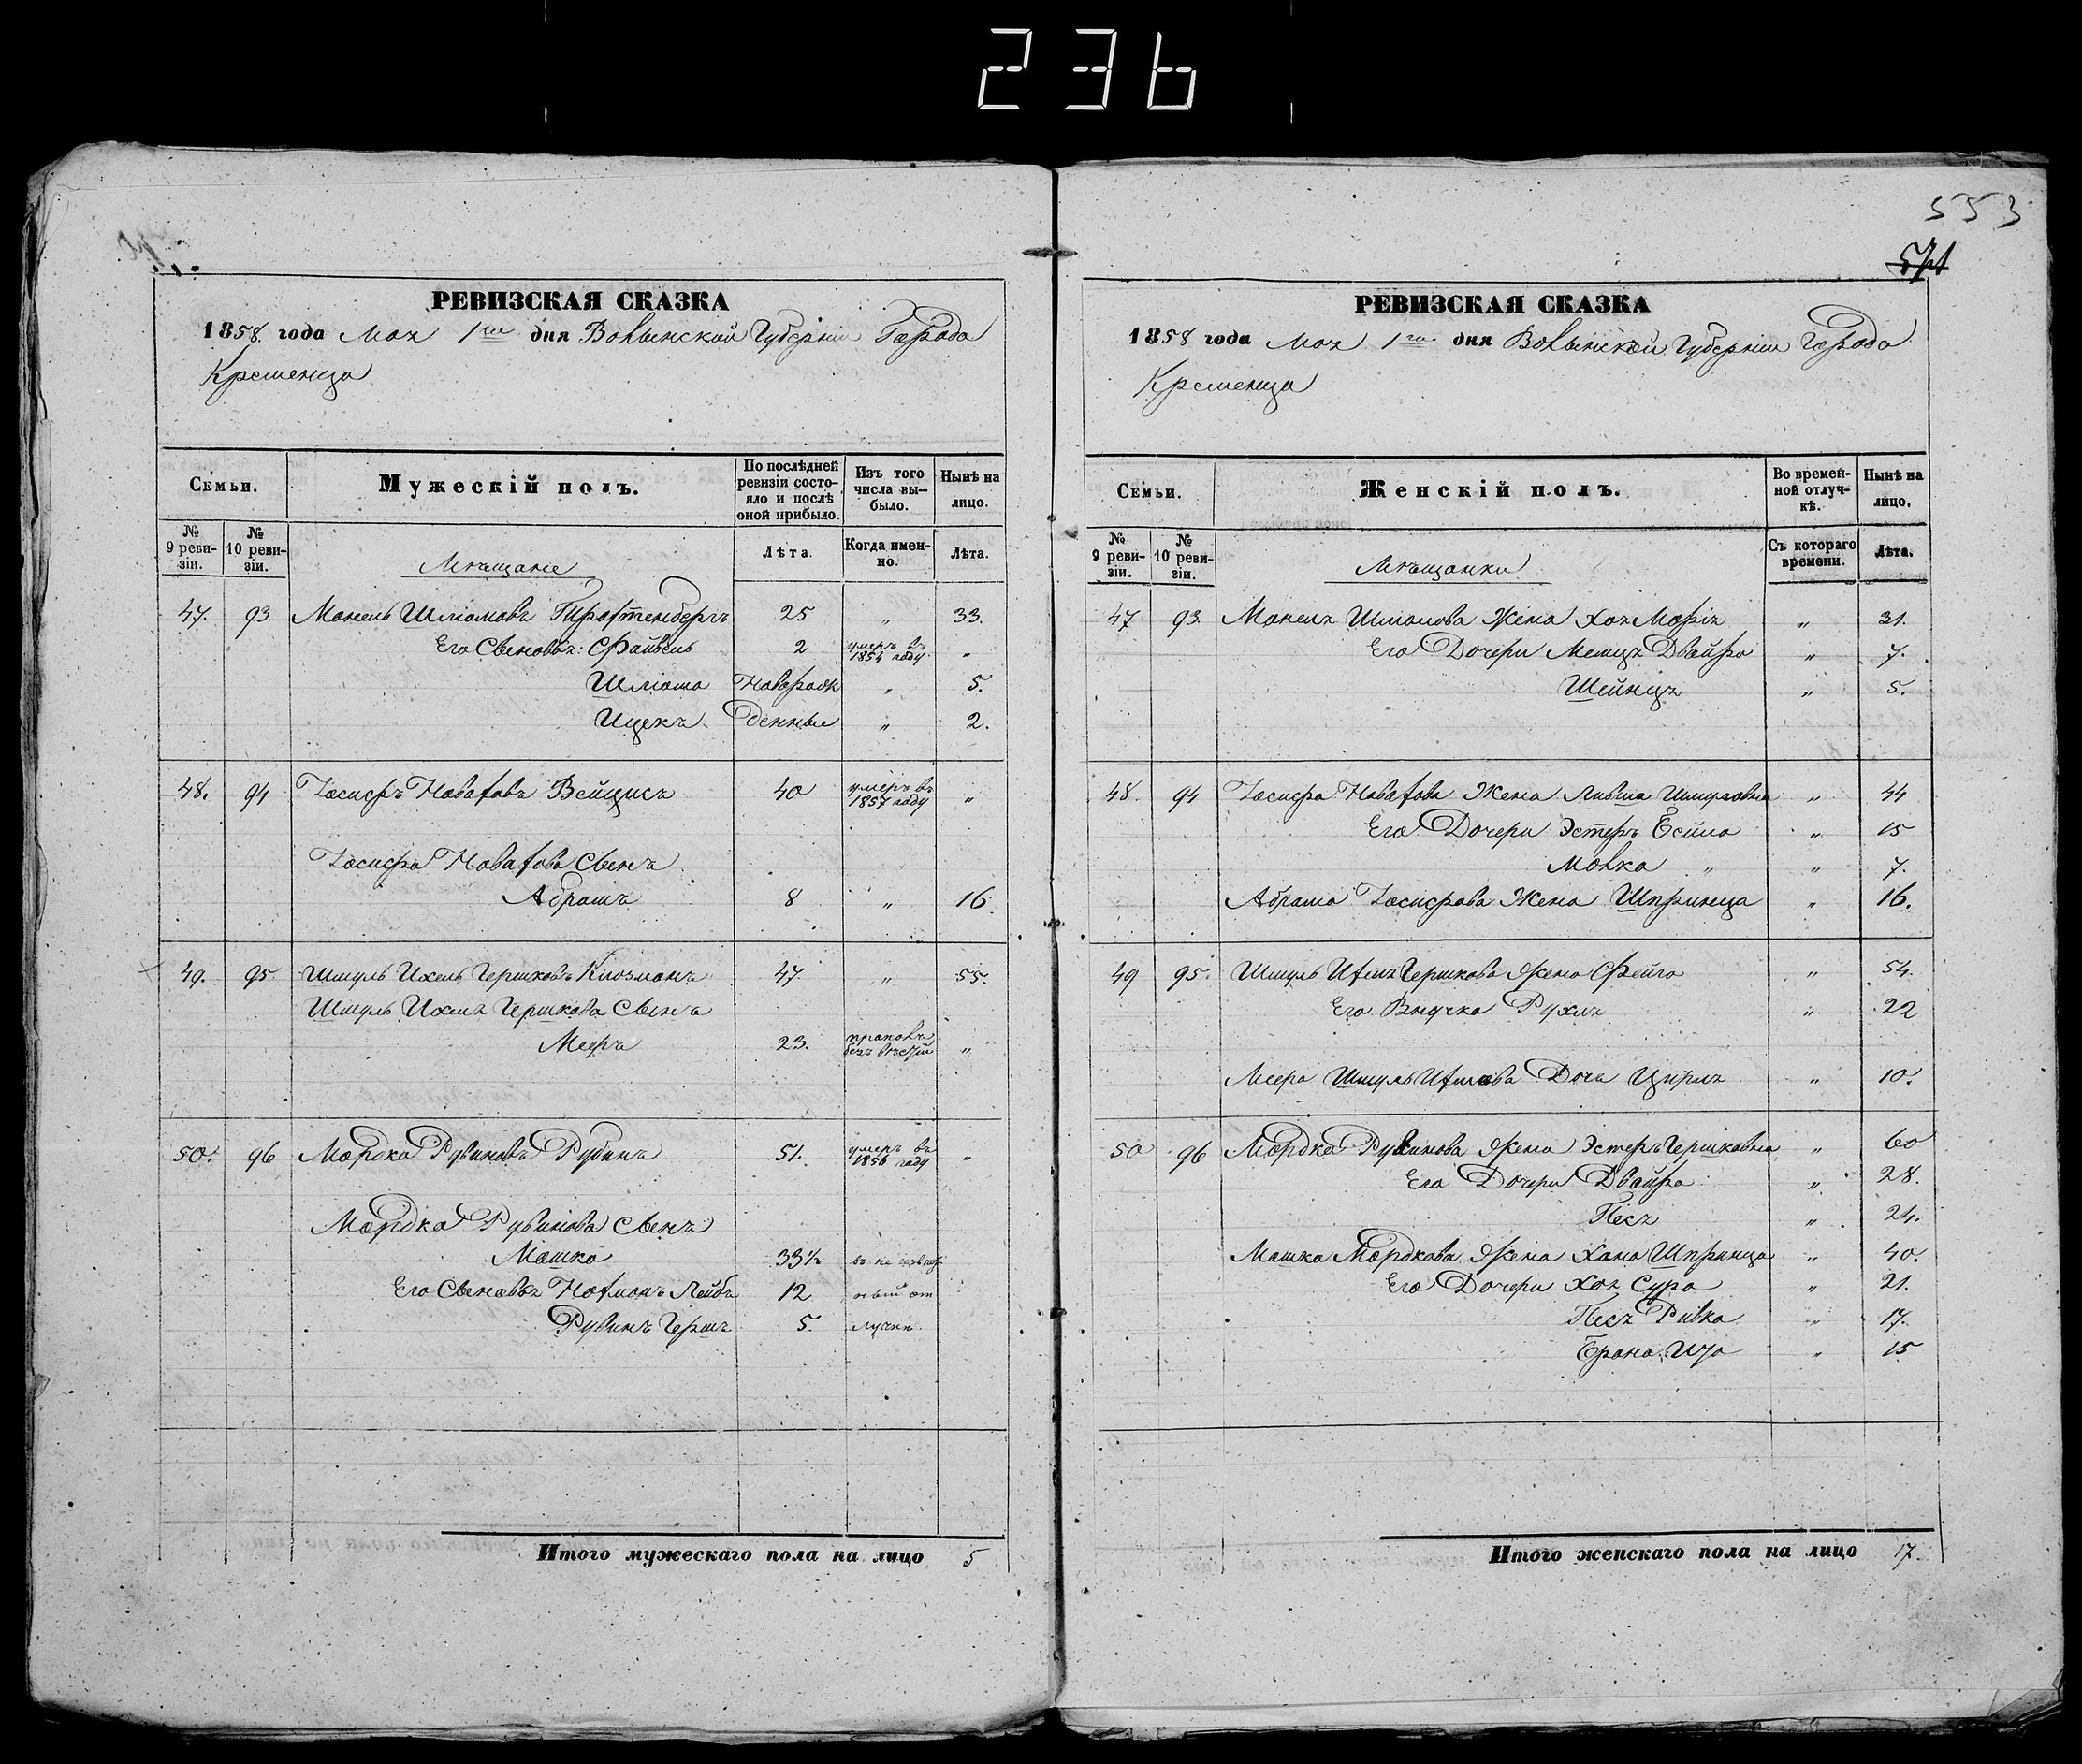 236
553
РЕВИЗСКАЯ СКАЗКА
1858 года Мая 1го дня Волынской Губерніи Города
Кременца
Семьи. Мужескій полъ. По послѣдней ревизіи состояло и послѣ оной прибыло. Изъ того числа выбыло. Нынѣ на лицо.
№ 9 ревизіи. № 10 ревизіи. Мѣщане Лѣта. Когда именно. Лѣта.
47. 93. Манель Шліомовъ 25 „ 33.
Его Сыновья: Файвель 2 умеръ въ 1854 году „
Шліома Новорож „ 5.
Ицекъ денные „ 2.
48. 94 Іосифъ Наваховъ Вейцисъ 40 умеръ въ 1857 году „
Іосифа Навахова Сынъ
Абрамъ 8 „ 16.
49. 95 Шмуль Ихель Гершковъ Клозманъ 47 „ 55.
Шмуль Ихеля Гершкова Сынъ
Мееръ 23. пропалъ безъ вѣсти „
50. 96 Мордко Рувиновъ Рубинъ 51. умеръ въ 1856 году „
Мордка Рувинова Сынъ
Мошко 33½ въ не извѣст
Его Сыновья Нахманъ Лейбъ 12 ной от
Рувинъ Гершъ 5. лучкѣ
Итого мужескаго пола на лицо 5
РЕВИЗСКАЯ СКАЗКА
1858 года Мая 1го дня Волынской Губерніи Города
Кременца
Семьи. Женскій полъ. Во временной отлучкѣ. Нынѣ на лицо.
№ 9 ревизіи. № 10 ревизіи. Мѣщанки Съ котораго времени. Лѣта.
47 93. Манеля Шліомова Жена Хая Марія „ 31.
Его Дочери Двойра „ 7.
Шейнця „ 5.
48. 94 Іосифа Навахова Жена Шмуловна „ 44
Его Дочери Эстеръ „ 15
Малка „ „ 7.
Абрама Іосифова Жена Шпринца „ 16.
49 95. Шмуль Ихеля Гершкова Жена Фейга „ 54.
Его Внучка Рухля „ 22
Меера Шмуль Ихелева Дочь Цирля „ 10.
50 96 Мордка Рувинова Жена Эстеръ Гершковна „ 60
Его Дочери Двойра „ 28.
Песя „ 24.
Мошка Мордкова Жена Хана Шпринца „ 40.
Его Дочери Хая Сура „ 21.
Песя Ривка „ 17.
Брана „ 15
Итого женскаго пола на лицо 17.